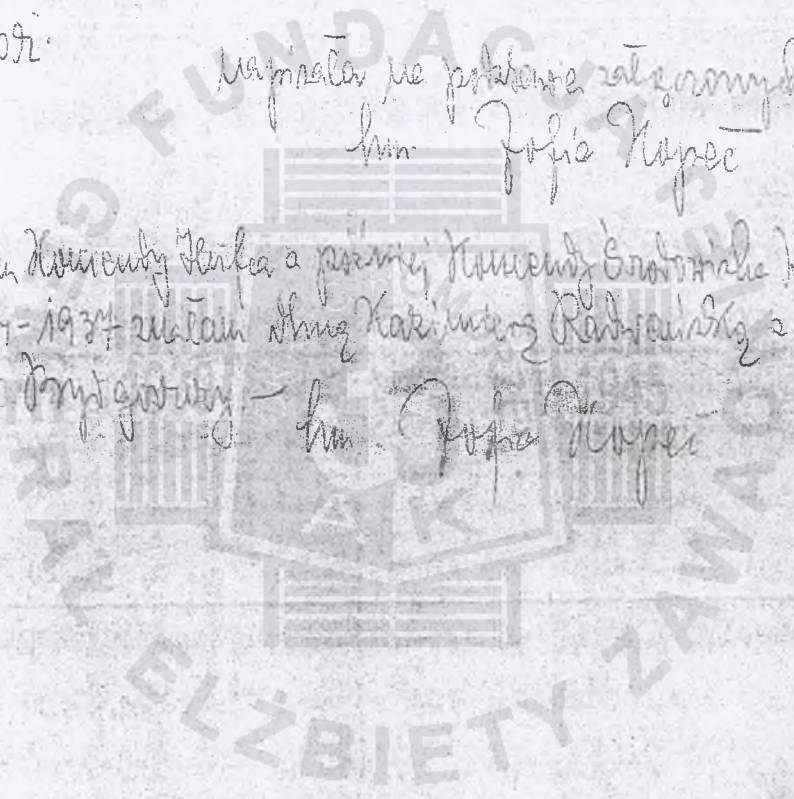 Napisała na podstawie załączonych
hm Zofia Kopeć
Komendy Hufca a później Komendy Środowiska
-1937 znałam druhnę Kazimierę Radwańską a
Bydgoszczy -
hm. Zofia Kopeć
FUNDACJA GENERAŁ ELŻBIETY ZAWACKIEJ
AK